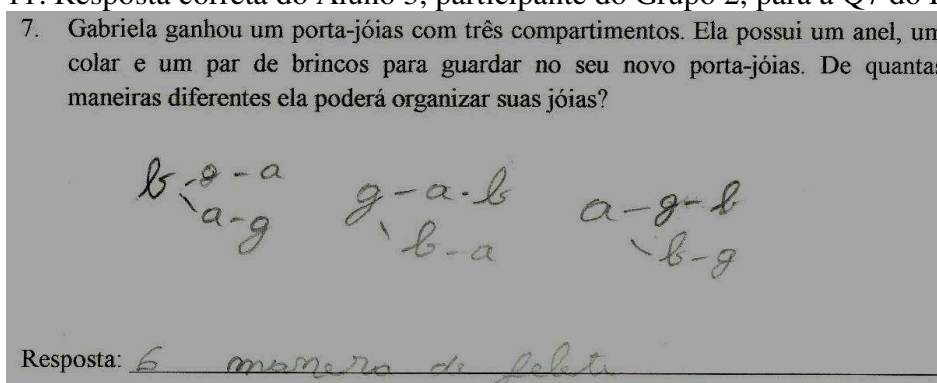 11. Resposta correta do Aluno 3, participante do Grupo 2, para a Q7 do
7. Gabriela ganhou um porta-jóias com três compartimentos. Ela possui um anel, um
colar e um par de brincos para guardar no seu novo porta-jóias. De quantas
maneiras diferentes ela poderá organizar suas jóias?
b - g - a
a - g
g - a - b
b - a
a - g - b
b - g
Resposta: 6 manera de